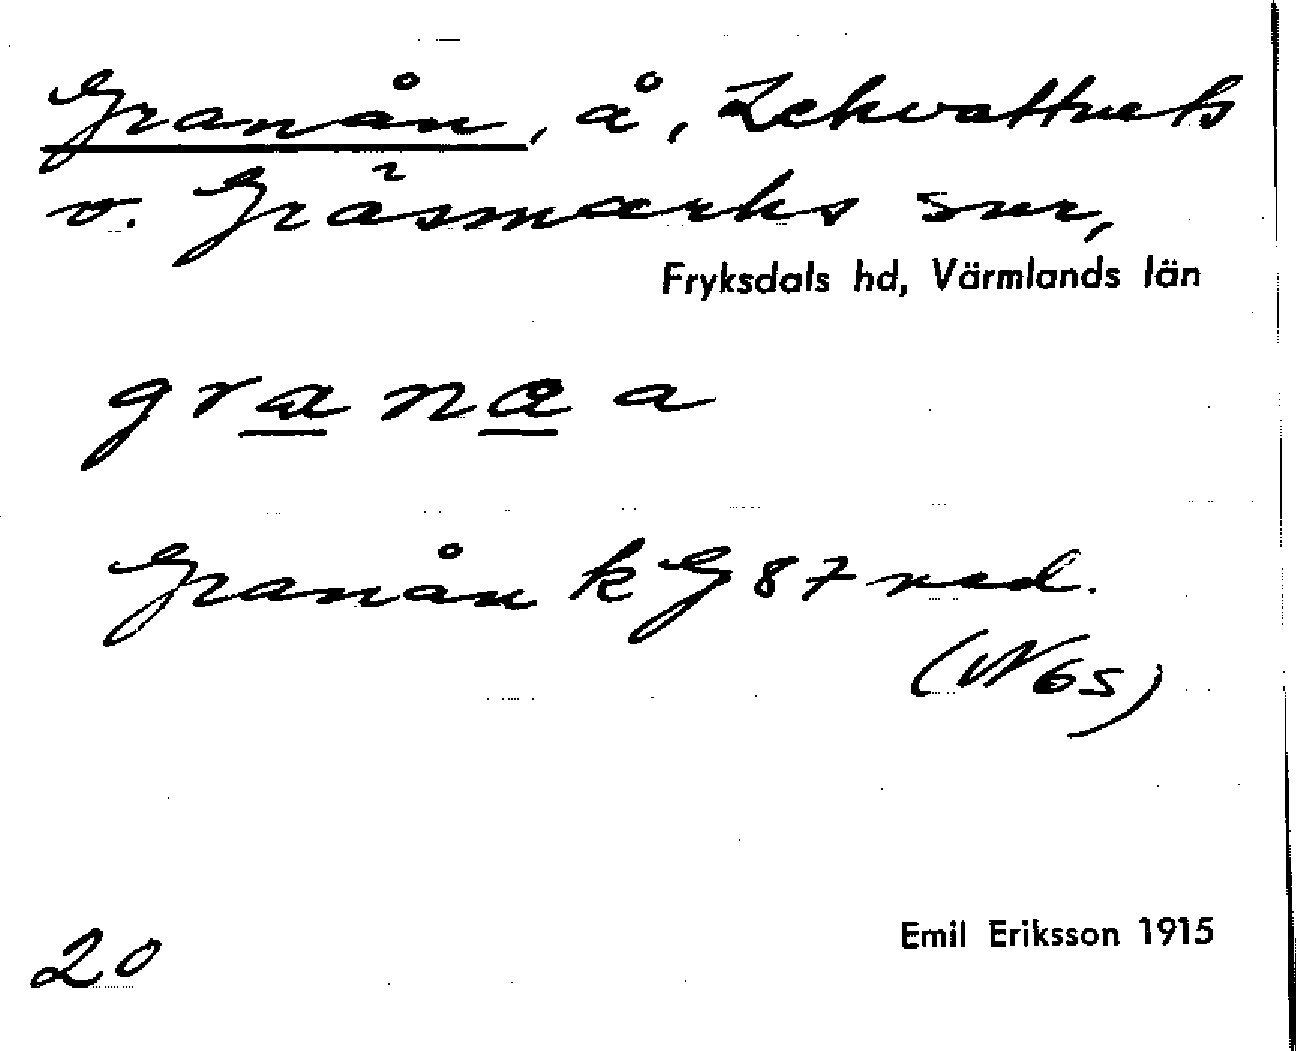 Granån, å, Lekvattnets
o. Gräsmarks snr,
Fryksdals hd, Värmlands län
grana a
Granån k G 87 ned.
(N 65)
Emil Eriksson 1915
20